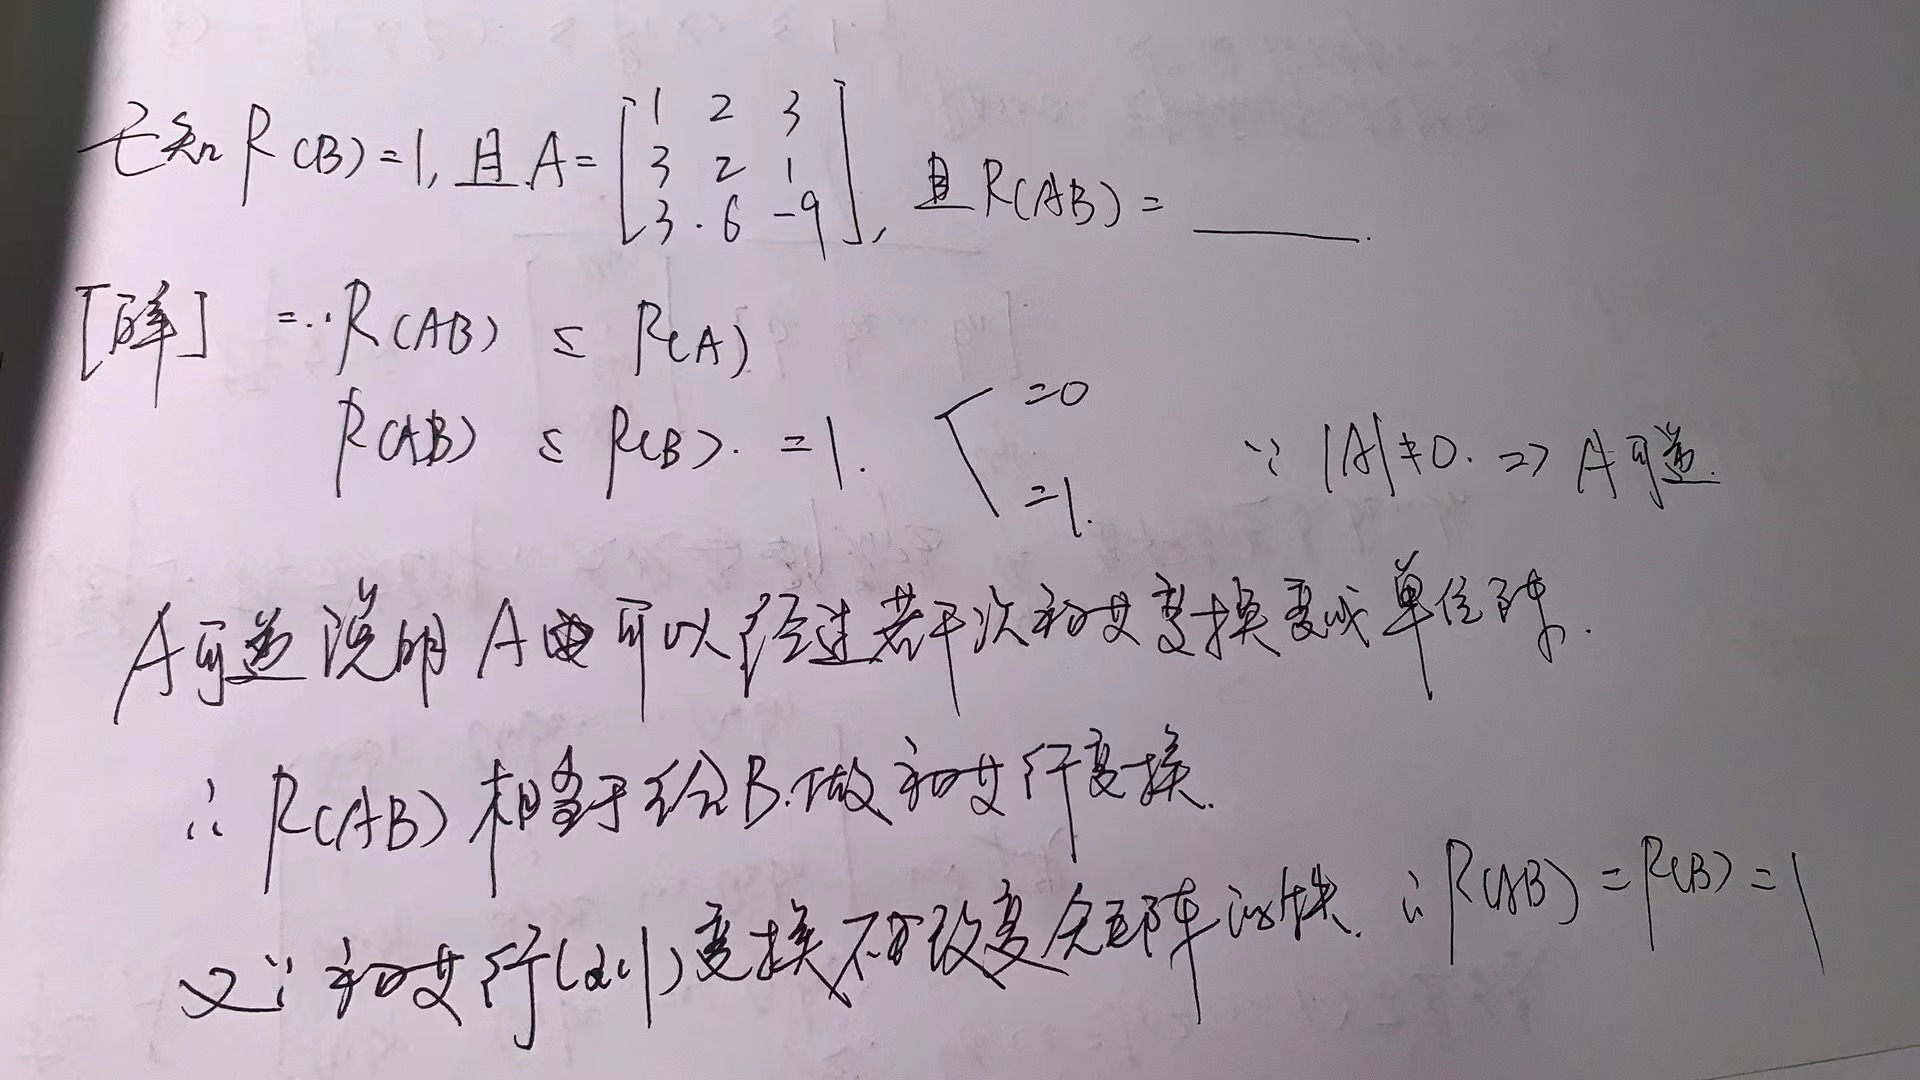 已知R(B)=1, 且A=[1 2 3
3 2 1
3 6 -9], 且R(AB)=____.
[解] ∵ R(AB) ≤ R(A)
R(AB) ≤ R(B). =1.
=0
=1.
∵ |A|≠0. => A可逆.
A可逆说明A可以经过若干次初等变换变成单位阵.
∴ R(AB)相当于给B.做初等行变换.
又∵初等行(列)变换不改变矩阵的秩. ∴R(AB)=R(B)=1